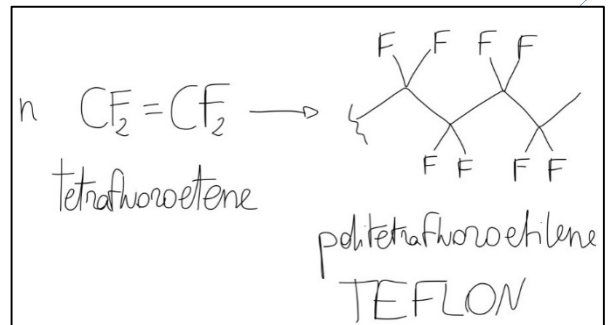 F F F F
n CF₂=CF₂ →
F F F F
tetrafluoroetene
politetrafluoroetilene
TEFLON